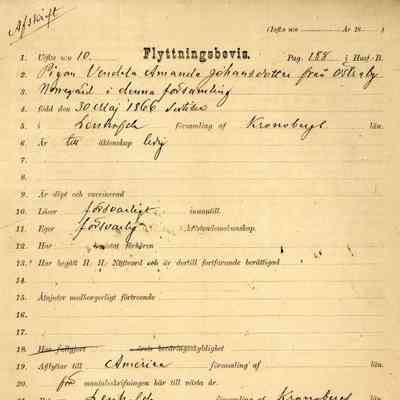 Afskrift
(Infta n:o År 18 )
1. Utfta n:o 10. Flyttningsbevis. Pag. 188 i Husf.-B.
2. Pigan Vendela Amanda Johansdotter från Österby
3. Norregård i denna församling
4. född den 30 Maj 1866
5. i församling af Kronobergs län.
6. Är till äktenskap ledig
7.
7.
8.
9. Är döpt och vaccinerad
10. Läser försvarligt innantill.
11. Eger försvarlig kristendomskunskap.
12. Har bevistat förhören
13. Har begått H. H. Nattvard och är dertill fortfarande berättigad
14.
15. Åtnjuter medborgerligt förtroende
16.
17.
18. Har fullgjort årets beväringsskyldighet
19. Afflyttar till America församling af län.
20. för mantalsskrifningen här till nästa år.
församling af Kronoberg län.